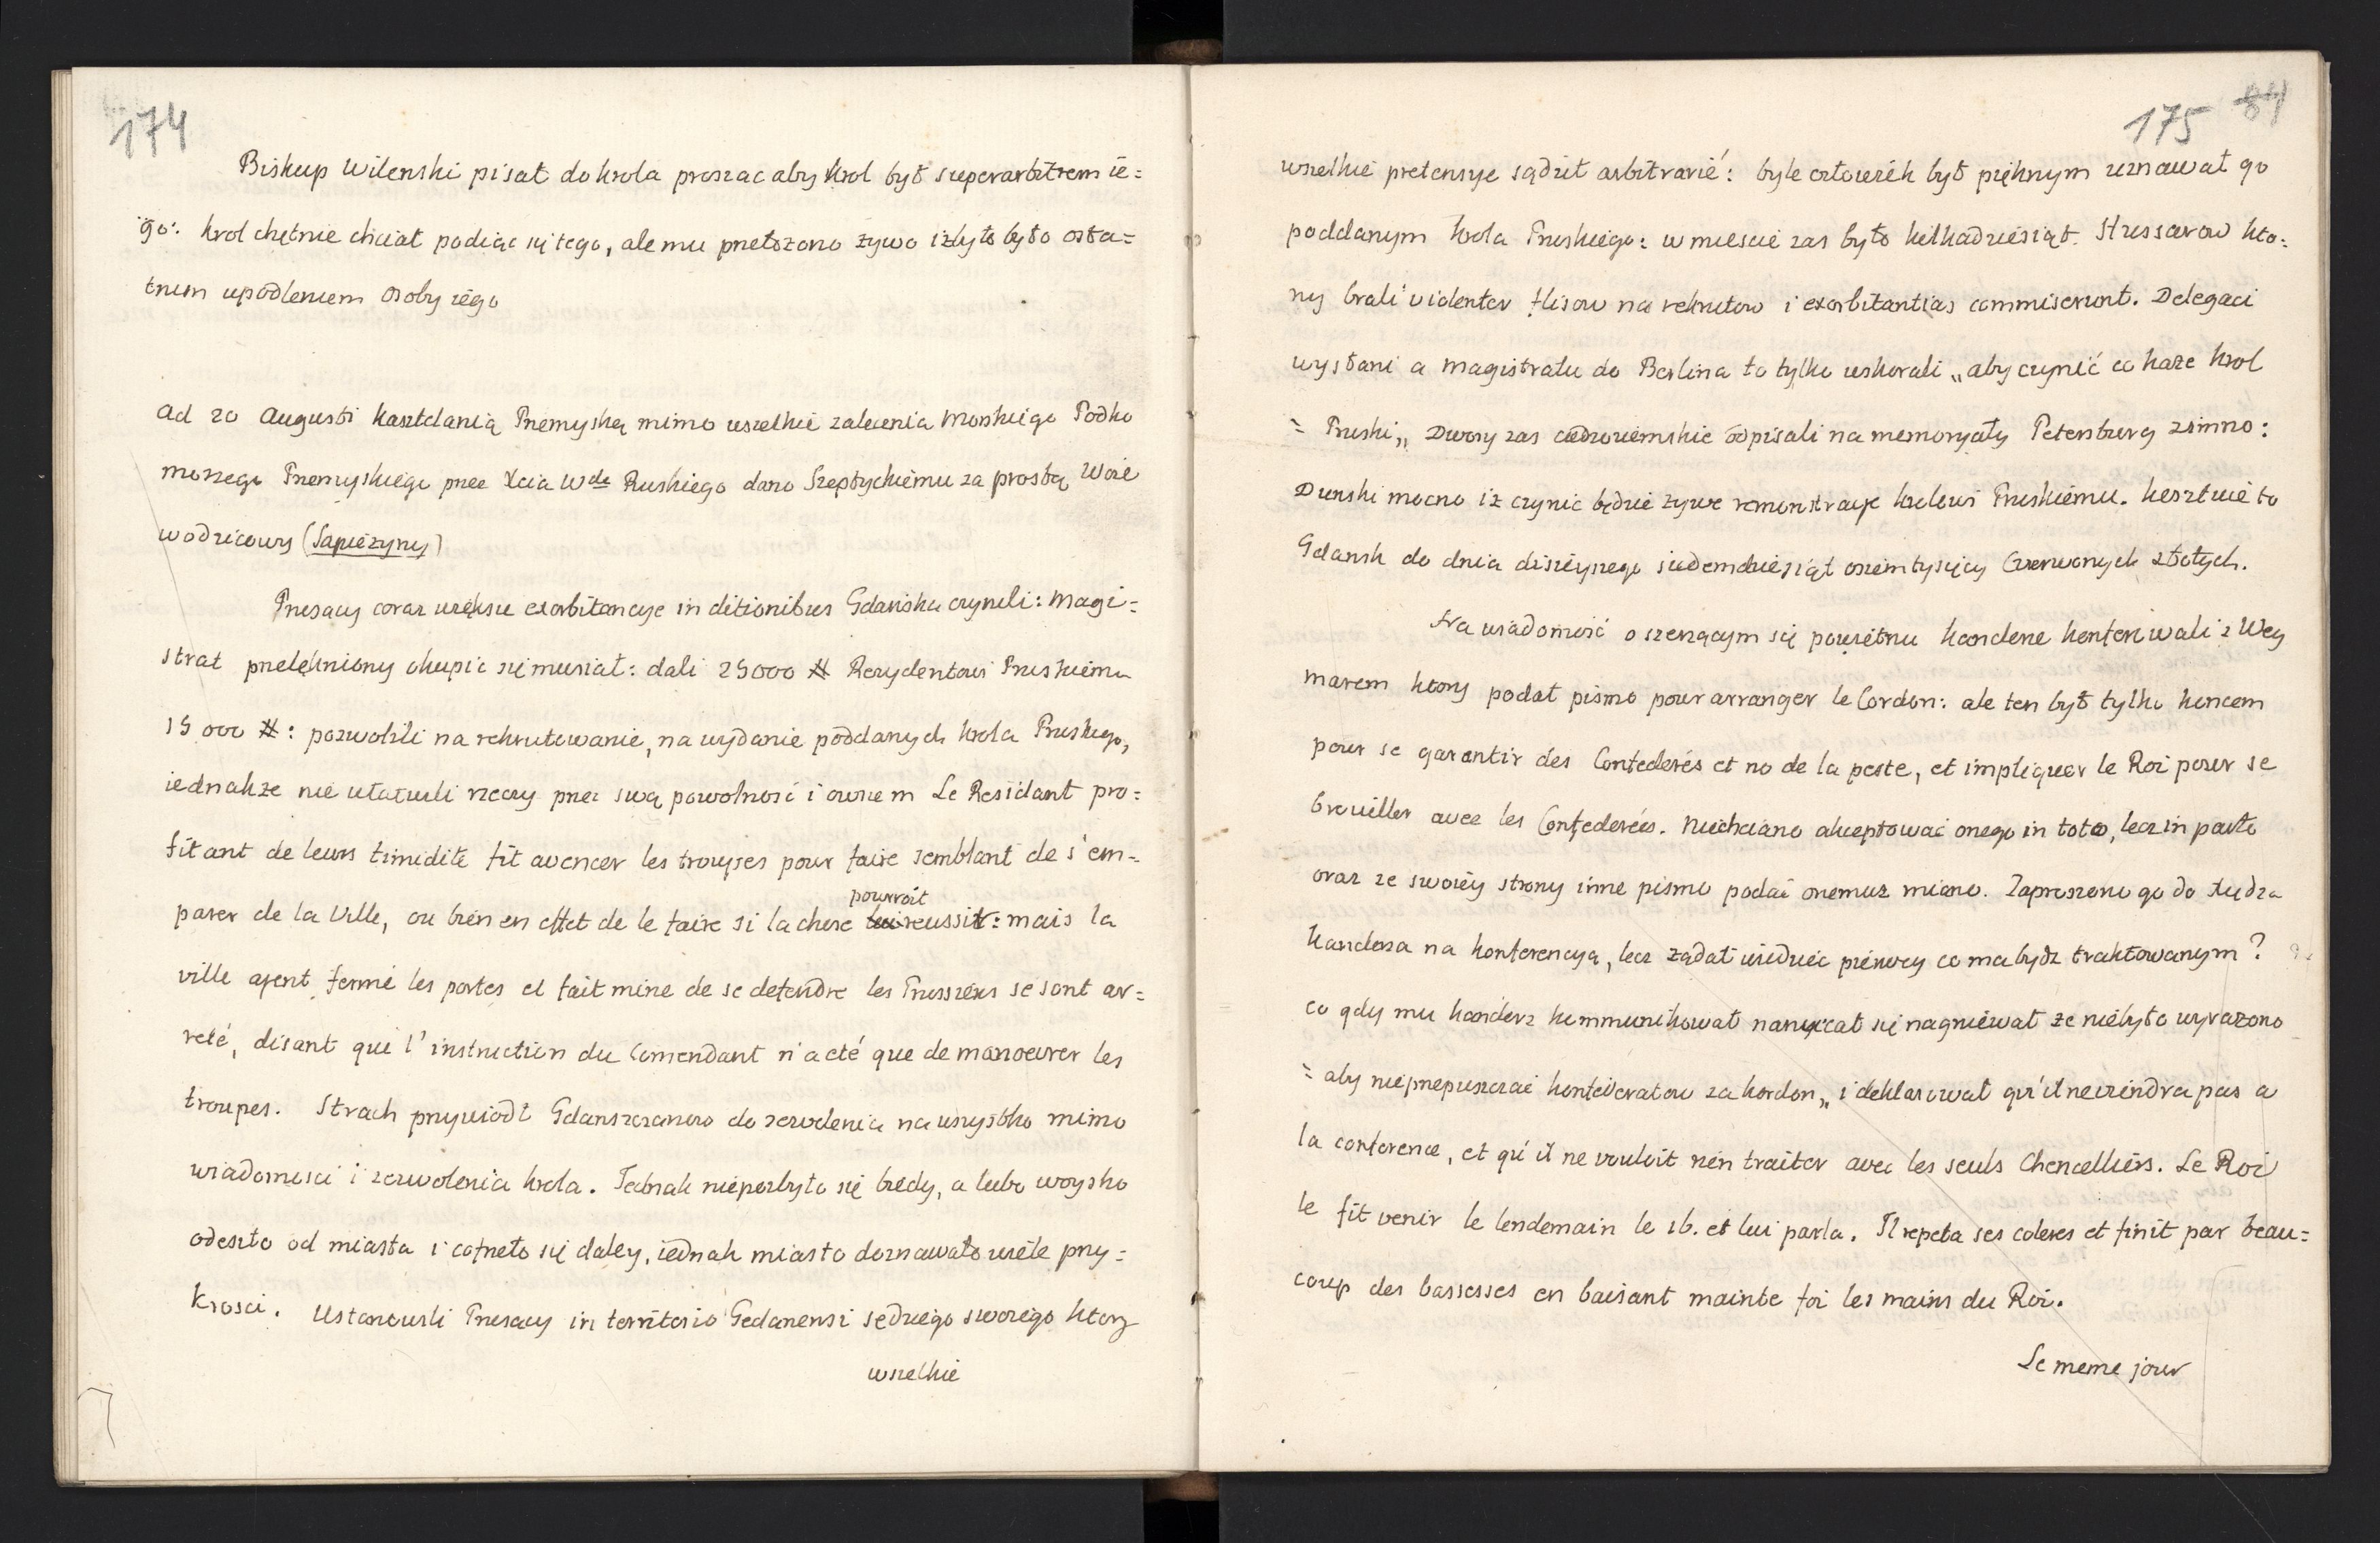 174
Biskup Wilenski pisał do krola proszac aby krol był superarbitrem ie=
go: krol chętnie chciał podiąc się tego, ale mu przełozono zywo izby to było osta=
tnim upodleniem osoby iego
ad 20 Augusti kasztelanią Przemyską mimo wszelkie zalecenia Mońskiego Podko
morzego Przemyskiego przez Xcia Wde Ruskiego dano Szeptyckiemu za prosbą Woie
wodzicowy (Sapiezyny)
Prusacy coraz większe exorbitancye in ditionibus Gdańska czynili: Magi=
strat przelękniony okupic się musiał: dali 25000 # Rezydentowi Pruskiemu
15 000 #: pozwolili na rekrutowanie, na wydanie poddanych krola Pruskiego,
iednakze nie ułatwili rzeczy przez swą powolność i owszem Le Residant pro=
fitant de leurs timidite fit avencer les troupes pour faire semblant de s'em=
pourroit
parer de la Ville, ou bien en effet de le faire si la chose lui reussir: mais la
ville ayent fermé les portes et fait mine de se defendre les Prussiens se sont ar=
reté, disant qui l'instruction du Comendant n'a eté que de manoeuvrer les
troupes. Strach przywiodł Gdanszczanow do zezwolenia na wszystko mimo
wiadomosci i zezwolenia krola. Jednak niepozbyto się biedy, a lubo woysko
odeszło od miasta i cofneło się daley, iednak miasto doznawało wiele przy=
krosci. Ustanowili Prusacy in territorio Gedanensi sędziego swoiego ktory
wszelkie
175 84
wszelkie pretensye sądził arbitrarié: byle człowiek był pięknym uznawał go
poddanym krola Pruskiego: w miescie zas było kilkadziesiąt Hussarow kto=
rzy brali violenter flisow na rekrutow i exorbitantias commiserunt. Delegaci
wysłani a magistratu do Berlina to tylko wskorali „aby czynić co kaze krol
= Pruski„ Dwory zas cudzoziemskie odpisali na memoryały Petersburg zimno:
Dunski mocno iz czynic będzie zywe remonstracye krolowi Pruskiemu. kosztuie to
Gdansk do dnia dzisieyszego siedemdziesiąt osiem tysięcy Czerwonych złotych.
Na wiadomość o szerzącym się powietrzu kanclerze konferowali z Wey
marem ktory podał pismo pour arranger le Cordon: ale ten był tylko koncem
pour se garantir des Confederés et no de la peste, et impliquer le Roi pour se
brouiller avec les Confederés. Niechciano akceptować onego in toto, lecz in parte
oraz ze swoiéy strony inne pismo podać onemuz miano. Zaproszono go do Xiędza
kanclerza na konferencyą, lecz ządał wiedziéc piérwey co ma bydz traktowanym?
co gdy mu kanclerz kommunikował nanxcat się nagniéwał ze niébyło wyrazono
= aby nieprzepuszczać konfederatow za kordon„ i deklarował qu'il ne viendra pas a
la conference, et qu'il ne vouloit rien traiter avec les seuls Chencelliers. Le Roi
le fit venir le lendemain le 16. et lui parla. Il repeta ses coleres et finit par beau=
coup des bassesses en baisant mainte foi les mains du Roi.
Le meme jour